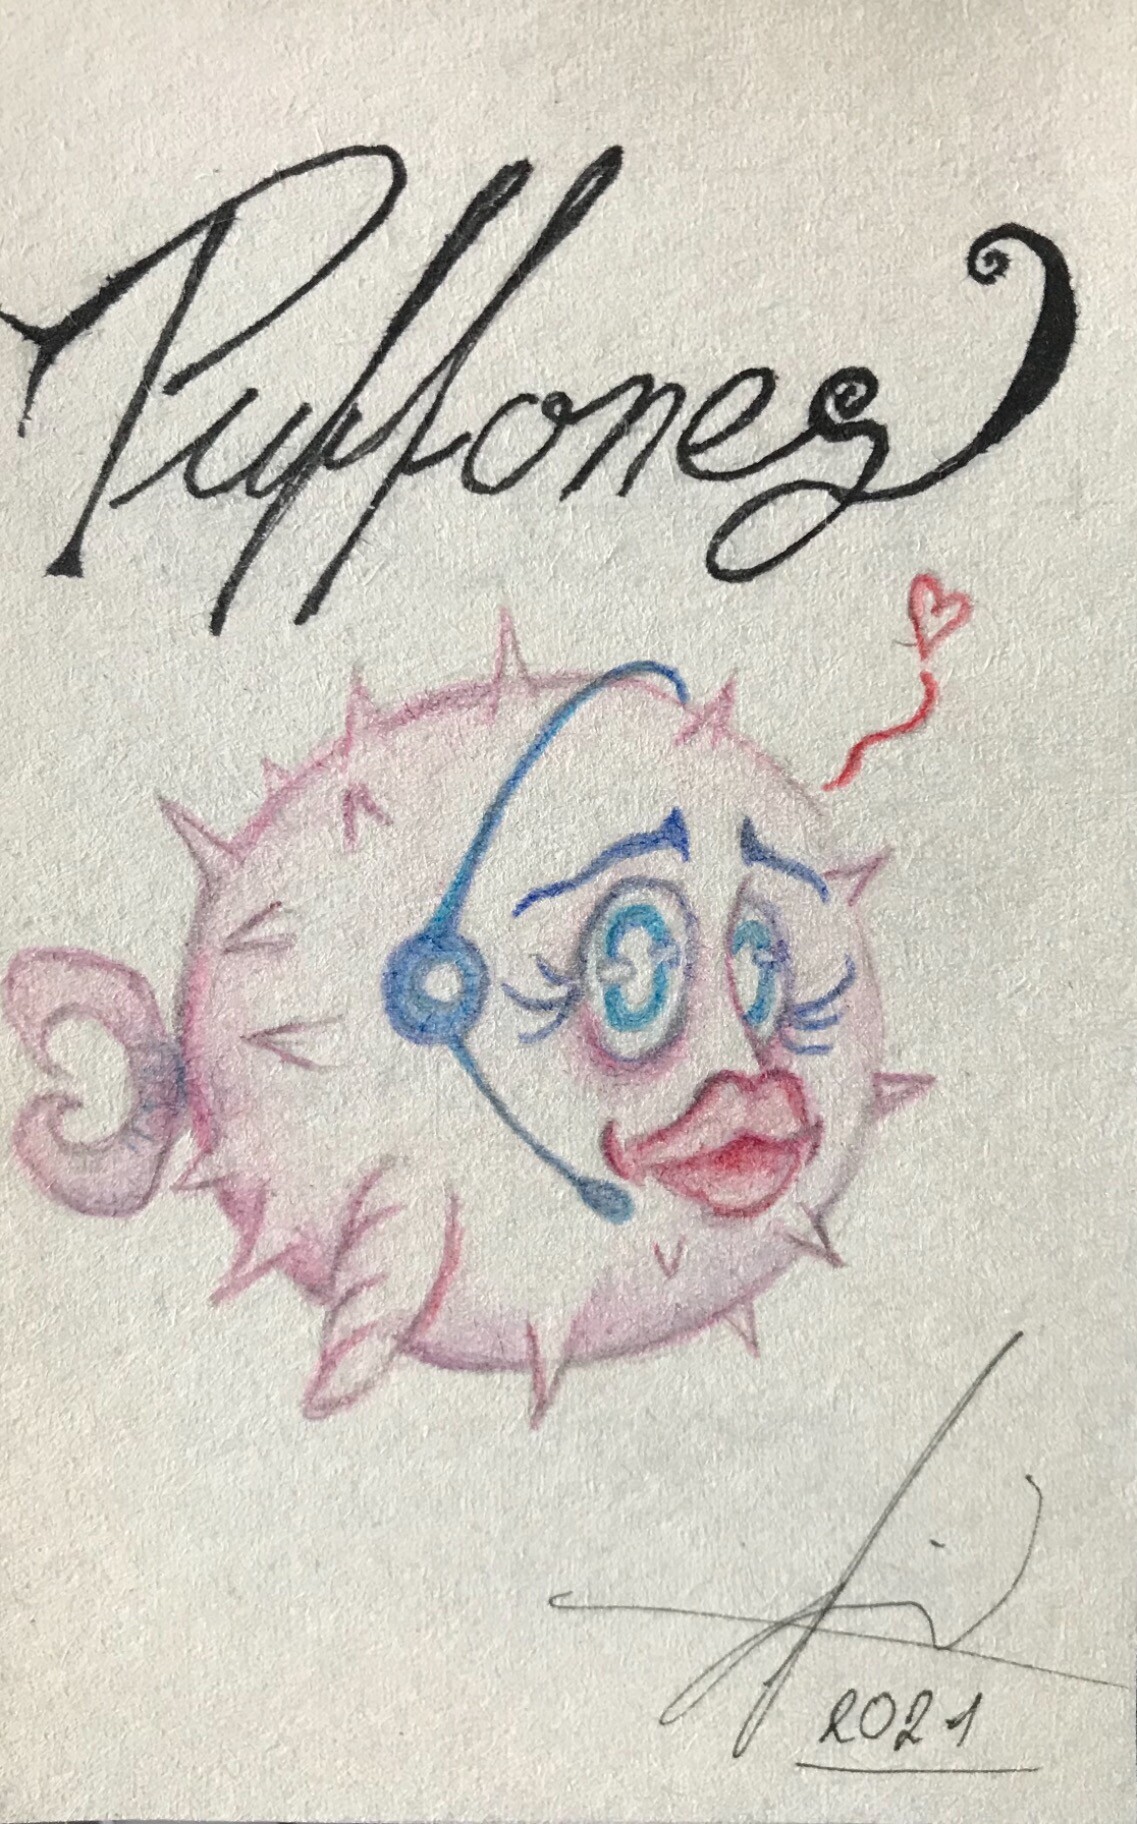 Puffones
2021